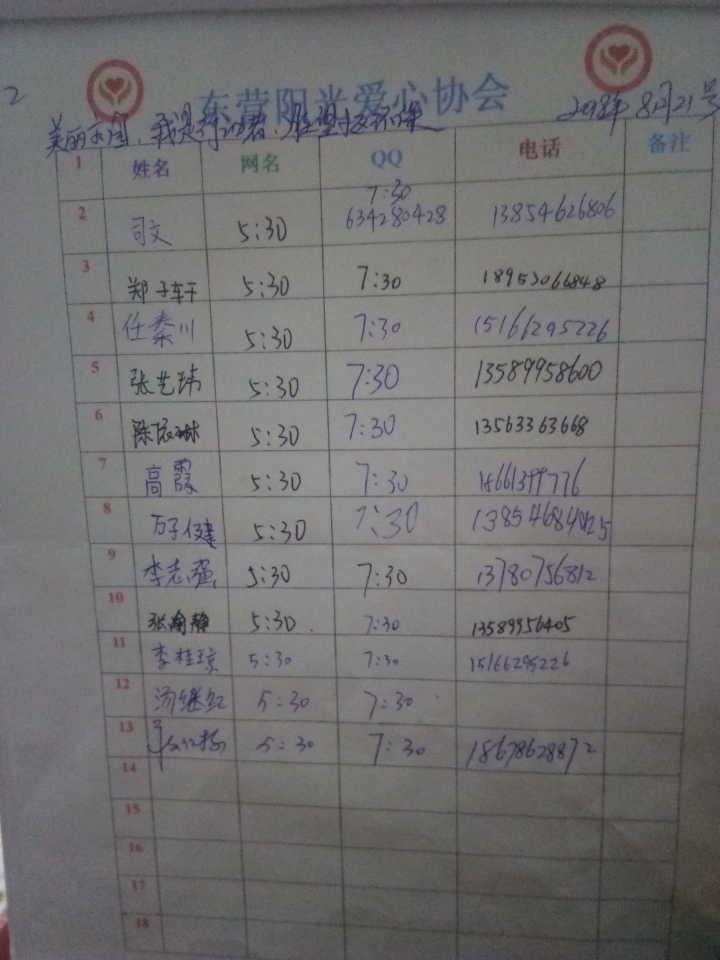 2
东营阳光爱心协会
美丽中国,我是行动者, 2018年8月21号
1 姓名 网名 QQ 电话 备注
7:30
2 司文 5:30 634280428 13854626806
3 郑子轩 5:30 7:30 18953066848
4 任秦川 5:30 7:30 15166295226
5 张艺玮 5:30 7:30 13589958600
6 5:30 7:30 13563363668
7 高霞 5:30 7:30 18661399776
8 5:30 7:30
9 李志强 5:30 7:30 13780756812
10 5:30 7:30 13589956405
11 李桂琼 5:30 7:30 15166295226
12 汤继红 5:30 7:30
13 5:30 7:30 18678628872
14
15
16
17
18